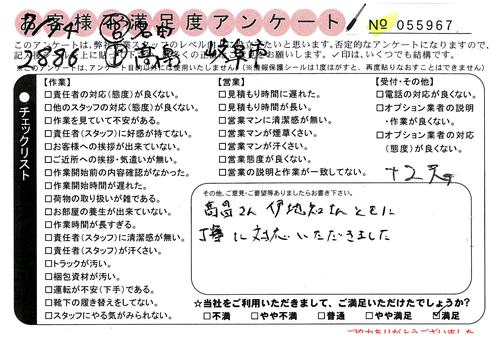 お客様不満足度アンケート
No 055967
岐阜市
このアンケートは、弊社
※このアンケートは、アンケート目的以外には使用いたしません。(情報保護シールは1度はがすと、再度貼りなおすことはできません)
●チェックリスト
【作業】
□責任者の対応(態度)が良くない。
□他のスタッフの対応(態度)が良くない。
□作業を見ていて不安がある。
□責任者(スタッフ)に好感が持てない。
□お客様への挨拶が出来ていない。
□ご近所への挨拶・気遣いが無い。
□作業開始前の内容確認がなかった。
□作業開始時間が遅れた。
□荷物の取り扱いが雑である。
□お部屋の養生が出来ていない。
□作業時間が長すぎる。
□責任者(スタッフ)に清潔感が無い。
□責任者(スタッフ)が汗くさい。
□トラックが汚い。
□梱包資材が汚い。
□運転が不安(下手)である。
□靴下の履き替えをしてない。
□スタッフにやる気がみられない。
【営業】
□見積もりに遅れた。
□見積もり時間が長い。
□営業マンに清潔感が無い。
□営業マンが煙草くさい。
□営業マンが汗くさい。
□営業態度が良くない。
□営業の説明と作業が一致してない。
【受付・その他】
□電話の対応が良くない。
□オプション業者の説明
・作業が良くない。
□オプション業者の対応
(態度)が良くない。
その他、ご意見・ご要望等ありましたらお書き下さい。
高畠さん 伊地知さん ともに
丁寧に対応いただきました
☆当社をご利用いただきまして、ご満足いただけたでしょうか?
□不満 □やや不満 □普通 □やや満足 ☑満足
ご協力ありがとうございました